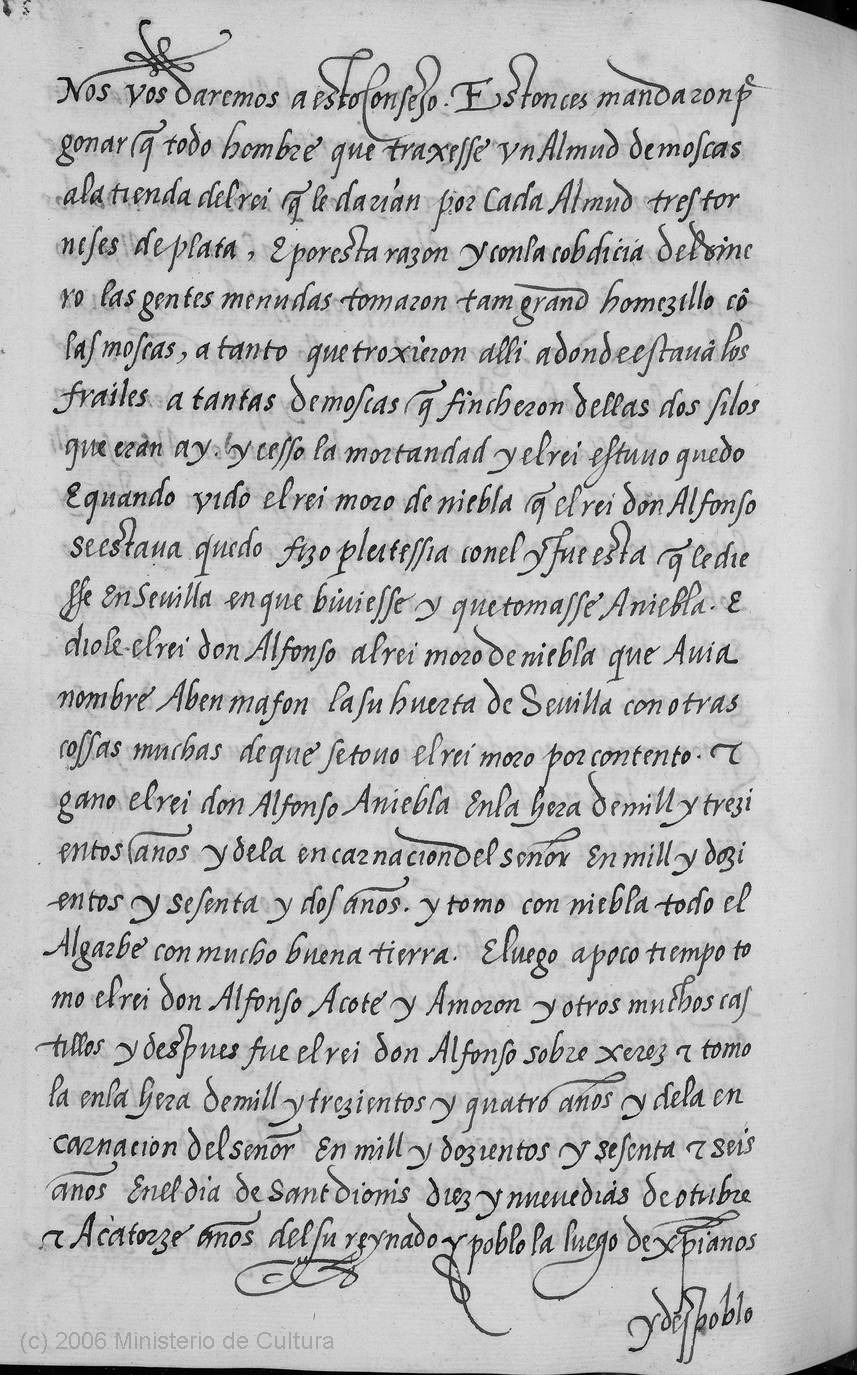 Nos vos daremos a esto Consejo. Estonces mandaron p̃
gonar q̃ todo hombre que traxesse vn Almud de moscas
a la tienda del rei q̃ le darian por Cada Almud tres tor
neses de plata, E por esta razon y con la cobdicia del dine
ro las gentes menudas tomaron tam grand homezillo cõ
las moscas, a tanto que troxieron alli adonde estauã los
frailes a tantas de moscas q̃ fincheron dellas dos silos
que eran ay. y cesso la mortandad y el rei estuuo quedo
E quando vido el rei moro de niebla q̃ el rei don Alfonso
se estaua quedo fizo pleitessia con el y fue esta q̃ le die
sse En Sevilla en que biviesse y que tomasse A niebla. E
diole el rei don Alfonso al rei moro de niebla que Auia
nombre Aben mafon la su huerta de Sevilla con otras
cossas muchas de que se tovo el rei moro por contento. τ
gano el rei don Alfonso A niebla En la hera de mill y trezi
entos años y de la encarnacion del señor En mill y dozi
entos y sesenta y dos años. y tomo con niebla todo el
Algarbe con mucho buena tierra. E luego a poco tiempo to
mo el rei don Alfonso Acote y Amoron y otros muchos cas
tillos y despues fue el rei don Alfonso sobre xerez τ tomo
la en la hera de mill y trezientos y quatro años y de la en
carnacion del señor En mill y dozientos y sesenta τ seis
años En el dia de Sant Dionis diez y nueve dias de otubre
τ A catorze años del su reynado y poblo la luego de xp̃ianos
y despoblo
(c) 2006 Ministerio de Cultura